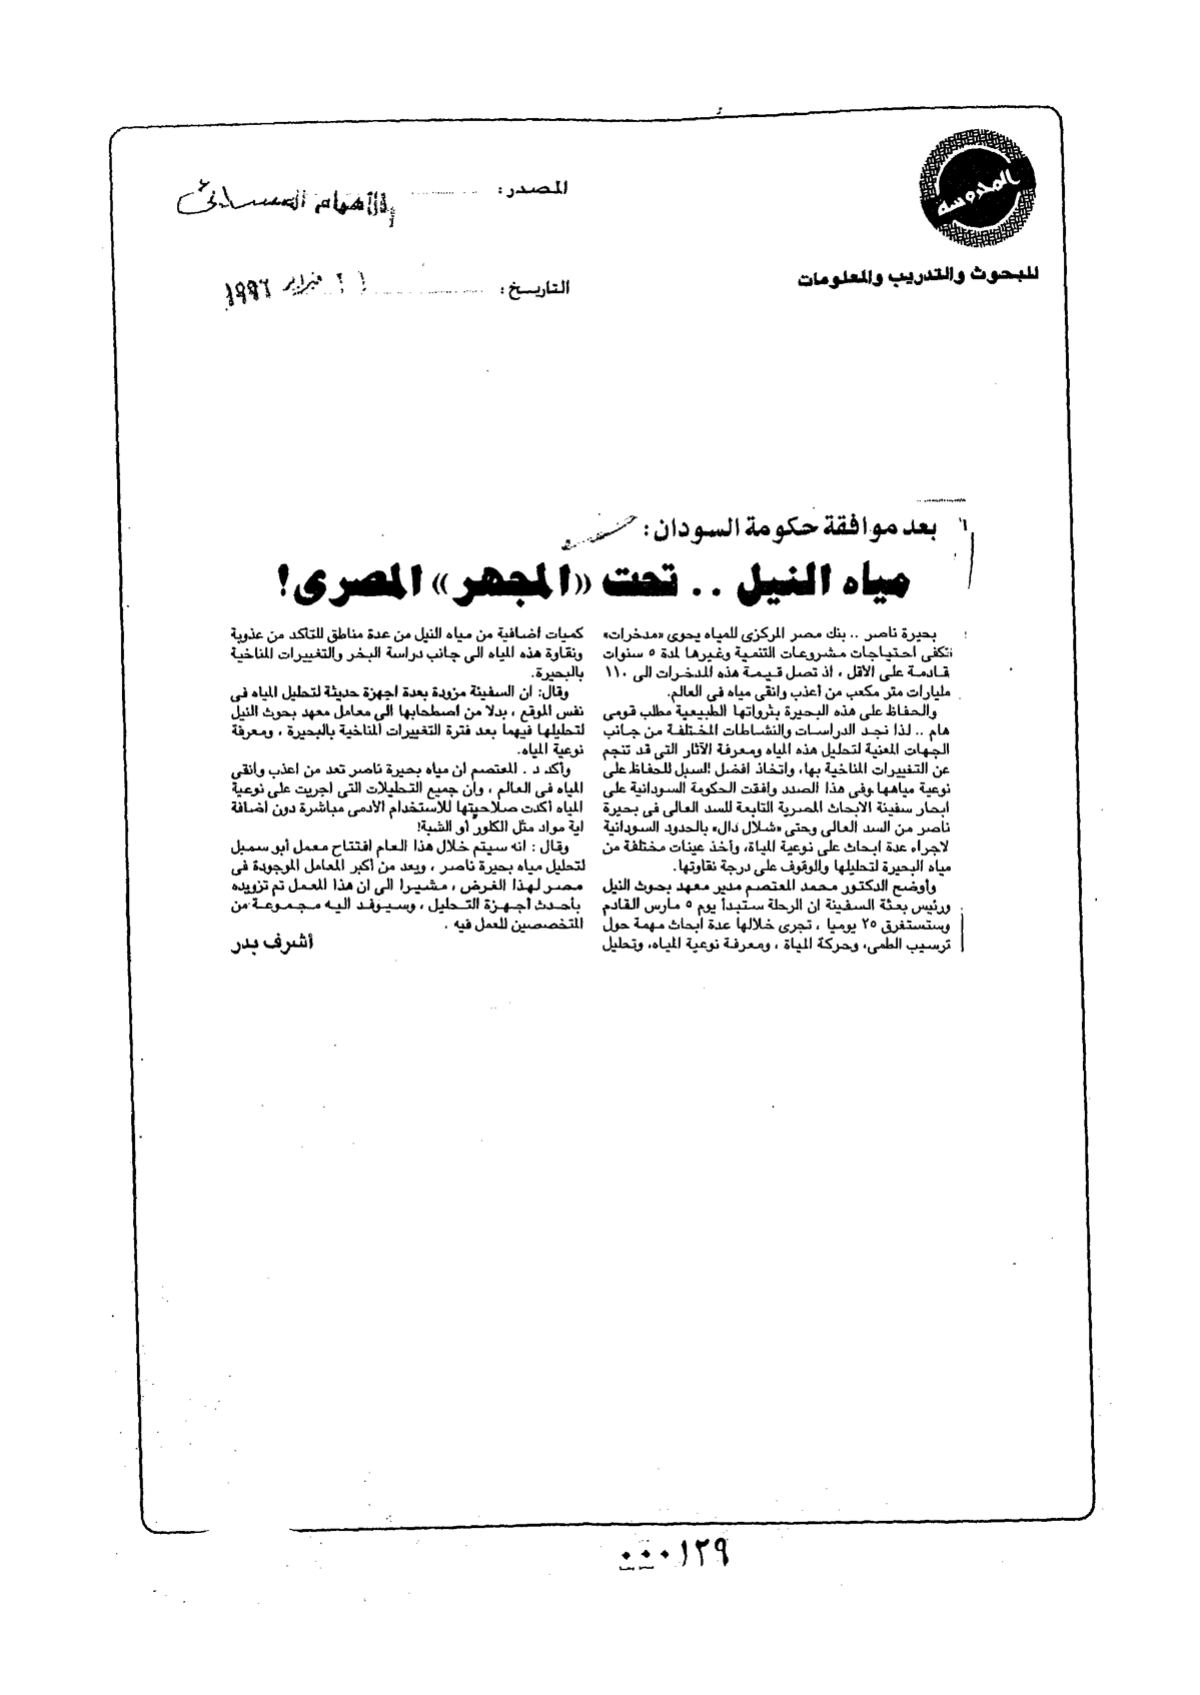 المحروسة
للبحوث والتدريب والمعلومات
المصدر: الأهرام المسائى
التاريخ: فبراير ١٩٩٦
بعد موافقة حكومة السودان:
مياه النيل .. تحت «المجهر» المصرى!
بحيرة ناصر .. بنك مصر المركزى للمياه يحوى «مدخرات»
تكفى احتياجات مشروعات التنمية وغيرها لمدة ٥ سنوات
قادمة على الاقل ، اذ تصل قيمة هذه المدخرات الى ١١٠
مليارات متر مكعب من أعذب وانقى مياه فى العالم.
والحفاظ على هذه البحيرة بثرواتها الطبيعية مطلب قومى
هام .. لذا نجد الدراسات والنشاطات المختلفة من جانب
الجهات المعنية لتحليل هذه المياه ومعرفة الآثار التى قد تنجم
عن التغييرات المناخية بها، واتخاذ افضل السبل للحفاظ على
نوعية مياهها وفى هذا الصدد وافقت الحكومة السودانية على
ابحار سفينة الابحاث المصرية التابعة للسد العالى فى بحيرة
ناصر من السد العالى وحتى «شلال دال» بالحدود السودانية
لاجراء عدة ابحاث على نوعية المياة، وأخذ عينات مختلفة من
مياه البحيرة لتحليلها والوقوف على درجة نقاوتها.
وأوضح الدكتور محمد المعتصم مدير معهد بحوث النيل
ورئيس بعثة السفينة ان الرحلة ستبدأ يوم ٥ مارس القادم
وستستغرق ٢٥ يوميا ، تجرى خلالها عدة ابحاث مهمة حول
ترسيب الطمى، وحركة المياة ، ومعرفة نوعية المياه، وتحليل
كميات اضافية من مياه النيل من عدة مناطق للتأكد من عذوبة
ونقاوة هذه المياه الى جانب دراسة البخر والتغييرات المناخية
بالبحيرة.
وقال: ان السفينة مزودة بعدة اجهزة حديثة لتحليل المياه فى
نفس الموقع ، بدلا من اصطحابها الى معامل معهد بحوث النيل
لتحليلها فيهما بعد فترة التغييرات المناخية بالبحيرة ، ومعرفة
نوعية المياه.
وأكد د . المعتصم ان مياه بحيرة ناصر تعد من اعذب وانقى
المياه فى العالم ، وأن جميع التحليلات التى اجريت على نوعية
المياه أكدت صلاحيتها للاستخدام الآدمى مباشرة دون اضافة
اية مواد مثل الكلور أو الشبة!
وقال : انه سيتم خلال هذا العام افتتاح معمل أبو سمبل
لتحليل مياه بحيرة ناصر ، ويعد من أكبر المعامل الموجودة فى
مصر لهذا الغرض ، مشيرا الى ان هذا المعمل تم تزويده
بأحدث أجهزة التحليل ، وسيوفد اليه مجموعة من
المتخصصين للعمل فيه .
أشرف بدر
٠٠٠١٢٩